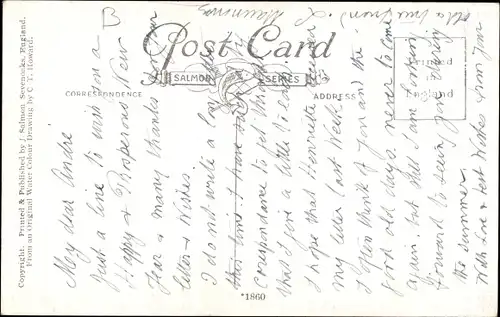 B
Post Card
SALMON SERIES
CORRESPONDENCE
ADDRESS
Printed in England
Copyright. Printed & Published by J. Salmon, Sevenoaks, England.
From an Original Water Colour Drawing by C. T. Howard.
*1860
My dear André
Just a line to wish you a
Happy & Prosperous New
Year & many thanks for your
letter & Wishes.
I do not write a long letter
this time. I have
correspondance to get through
that I give a little to each.
I hope that Henriette received
my letter last Week.
I often think of you and the
good old days never to come
again but still I am looking
forward to seeing you during
the summer.
With Love & best Wishes from your
old &